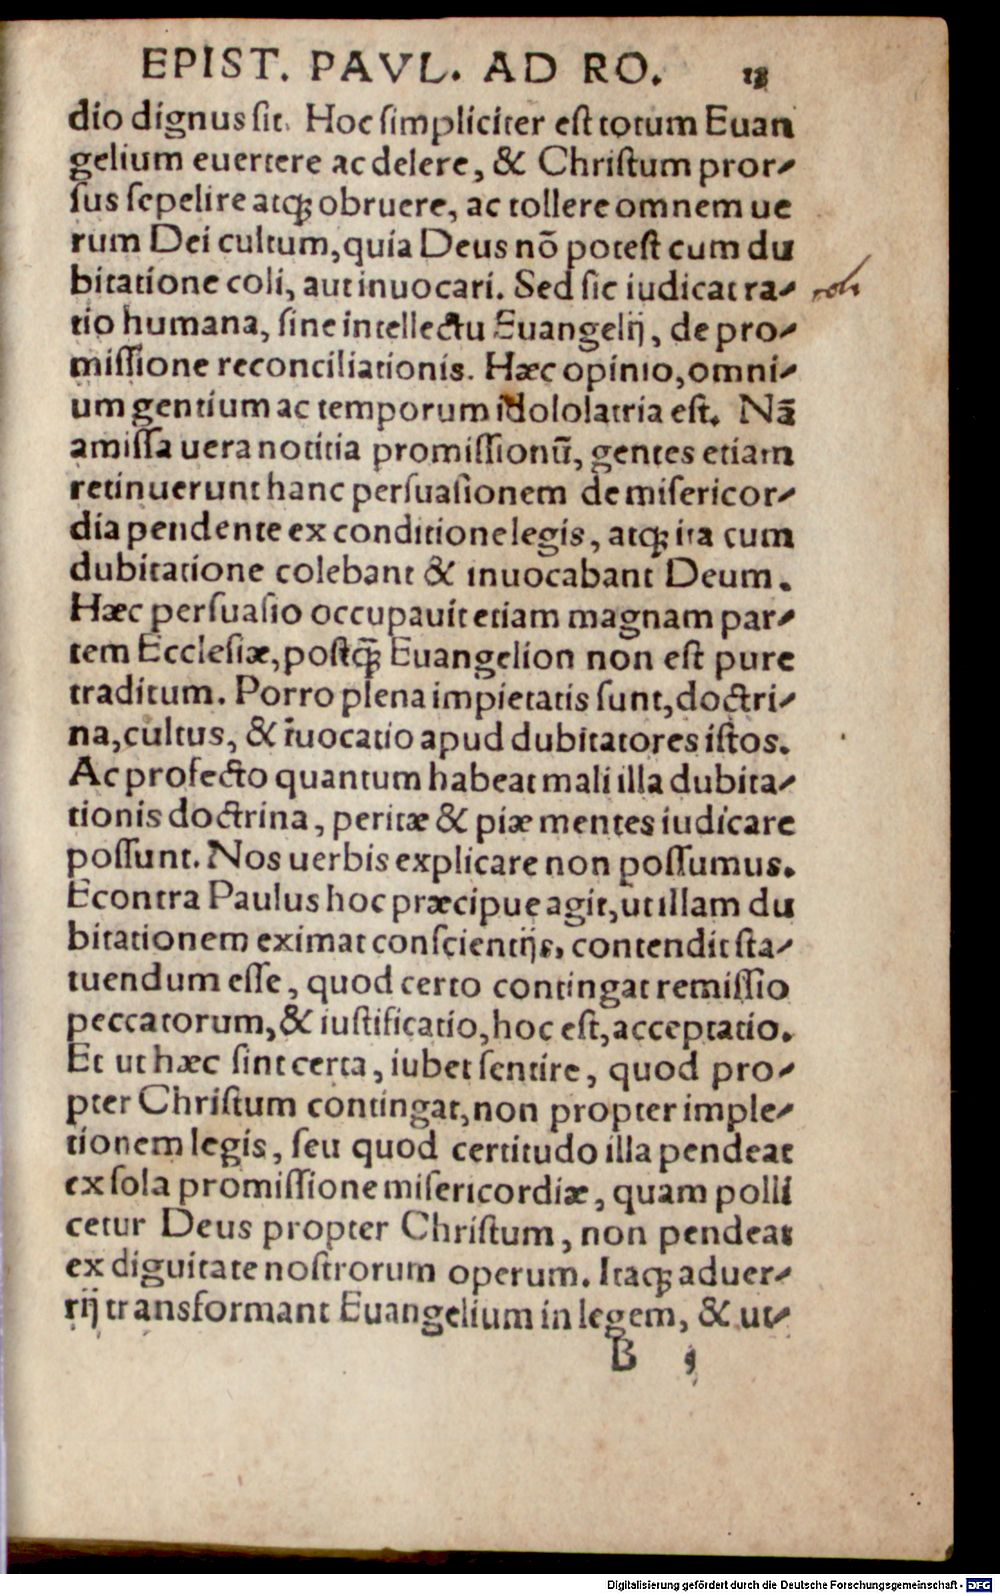 EPIST. PAVL. AD RO. 13
dio dignus sit. Hoc simpliciter est totum Euan
gelium euertere ac delere, & Christum pror-
sus sepelire atq; obruere, ac tollere omnem ue
rum Dei cultum, quia Deus nō potest cum du
bitatione coli, aut inuocari. Sed sic iudicat ra-
tio humana, sine intellectu Euangelij, de pro-
missione reconciliationis. Hæc opinio, omni-
um gentium ac temporum idololatria est. Nā
amissa uera notitia promissionū, gentes etiam
retinuerunt hanc persuasionem de misericor-
dia pendente ex conditione legis, atq; ita cum
dubitatione colebant & inuocabant Deum.
Hæc persuasio occupauit etiam magnam par-
tem Ecclesiæ, postq̄; Euangelion non est pure
traditum. Porro plena impietatis sunt, doctri-
na, cultus, & īuocatio apud dubitatores istos.
Ac profecto quantum habeat mali illa dubita-
tionis doctrina, peritæ & piæ mentes iudicare
possunt. Nos uerbis explicare non possumus.
Econtra Paulus hoc præcipue agit, ut illam du
bitationem eximat conscientijs, contendit sta-
tuendum esse, quod certo contingat remissio
peccatorum, & iustificatio, hoc est, acceptatio.
Et ut hæc sint certa, iubet sentire, quod pro-
pter Christum contingat, non propter imple-
tionem legis, seu quod certitudo illa pendeat
ex sola promissione misericordiæ, quam polli
cetur Deus propter Christum, non pendeat
ex diguitate nostrorum operum. Itaq; aduer-
rij transformant Euangelium in legem, & ut-
B 5
Digitalisierung gefördert durch die Deutsche Forschungsgemeinschaft - DFG